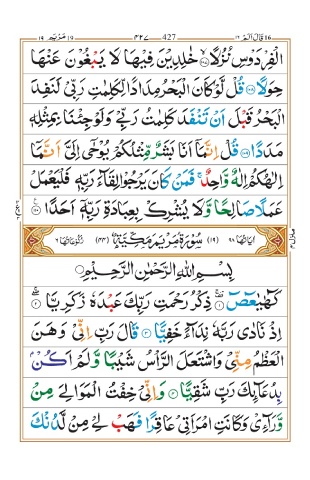 قال الم ١٦ 427 ٤٢٧ مريم ١٩
الْفِرْدَوْسِ نُزُلًا ۙ۝١٠٧ خٰلِدِيْنَ فِيْهَا لَا يَبْغُوْنَ عَنْهَا
حِوَلًا ۝١٠٨ قُلْ لَّوْ كَانَ الْبَحْرُ مِدَادًا لِّكَلِمٰتِ رَبِّيْ لَنَفِدَ
الْبَحْرُ قَبْلَ اَنْ تَنْفَدَ كَلِمٰتُ رَبِّيْ وَلَوْ جِئْنَا بِمِثْلِهٖ
مَدَدًا ۝١٠٩ قُلْ اِنَّمَاۤ اَنَا بَشَرٌ مِّثْلُكُمْ يُوْحٰۤى اِلَيَّ اَنَّمَاۤ
اِلٰهُكُمْ اِلٰهٌ وَّاحِدٌ ۚ فَمَنْ كَانَ يَرْجُوْا لِقَآءَ رَبِّهٖ فَلْيَعْمَلْ
عَمَلًا صَالِحًا وَّلَا يُشْرِكْ بِعِبَادَةِ رَبِّهٖۤ اَحَدًا ۝١١٠
اٰيَاتُهَا ٩٨ (١٩) سُوْرَةُ مَرْيَمَ مَكِّيَّةٌ (٤٤) رُكُوْعَاتُهَا ٦
بِسْمِ اللهِ الرَّحْمٰنِ الرَّحِيْمِ
كٓهٰيٰعٓصٓ ۝١ ذِكْرُ رَحْمَتِ رَبِّكَ عَبْدَهٗ زَكَرِيَّا ۝٢
اِذْ نَادٰى رَبَّهٗ نِدَآءً خَفِيًّا ۝٣ قَالَ رَبِّ اِنِّيْ وَهَنَ
الْعَظْمُ مِنِّيْ وَاشْتَعَلَ الرَّاْسُ شَيْبًا وَّلَمْ اَكُنْۢ
بِدُعَآئِكَ رَبِّ شَقِيًّا ۝٤ وَاِنِّيْ خِفْتُ الْمَوَالِيَ مِنْ
وَّرَآءِيْ وَكَانَتِ امْرَاَتِيْ عَاقِرًا فَهَبْ لِيْ مِنْ لَّدُنْكَ